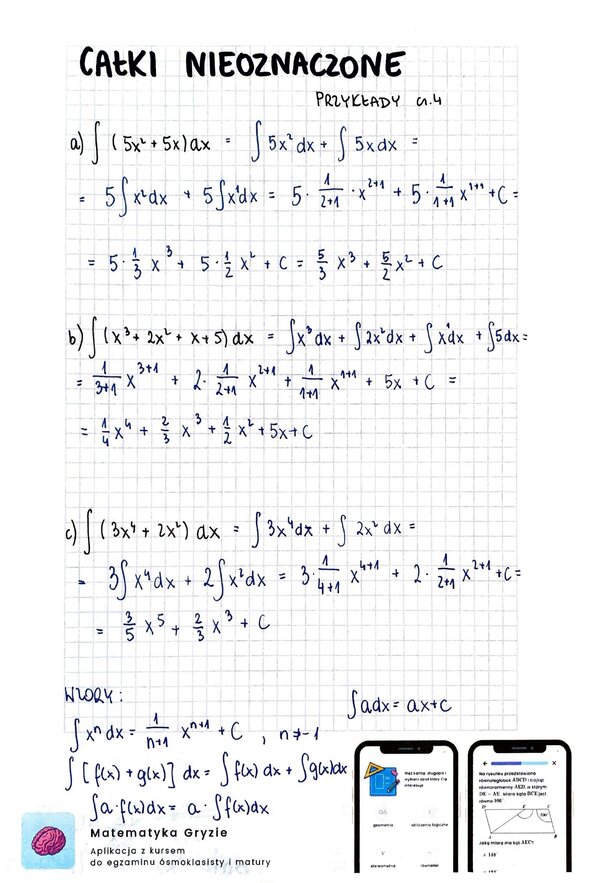 CAŁKI NIEOZNACZONE
PRZYKŁADY cz.4
a) ∫ (5x² + 5x) dx = ∫ 5x² dx + ∫ 5x dx =
= 5∫x²dx + 5∫x¹dx = 5 · 1/(2+1) · x²⁺¹ + 5 · 1/(1+1) x¹⁺¹ + C =
= 5 · 1/3 x³ + 5 · 1/2 x² + C = 5/3 x³ + 5/2 x² + C
b) ∫ (x³ + 2x² + x + 5) dx = ∫x³dx + ∫2x²dx + ∫x¹dx + ∫5dx =
= 1/(3+1) x³⁺¹ + 2 · 1/(2+1) x²⁺¹ + 1/(1+1) x¹⁺¹ + 5x + C =
= 1/4 x⁴ + 2/3 x³ + 1/2 x² + 5x + C
c) ∫ (3x⁴ + 2x²) dx = ∫3x⁴dx + ∫ 2x² dx =
= 3∫x⁴dx + 2∫x²dx = 3 · 1/(4+1) x⁴⁺¹ + 2 · 1/(2+1) x²⁺¹ + C =
= 3/5 x⁵ + 2/3 x³ + C
WZORY:
∫adx = ax+c
∫ xⁿ dx = 1/(n+1) xⁿ⁺¹ + C , n ≠ -1
∫ [f(x) + g(x)] dx = ∫f(x) dx + ∫g(x)dx
∫a·f(x)dx = a · ∫f(x)dx
Matematyka Gryzie
Aplikacja z kursem
do egzaminu ósmoklasisty i matury
wybierz dział który Cię
interesuje
geometria
obliczenia logiczne
stereometria
równania
Na rysunku przedstawiono
równoległobok ABCD i trójkąt
równoramienny AED, w którym
DE = AE
równa 106°
D E C
106°
A B
Jaką miarę ma kąt AEC?
A 148°